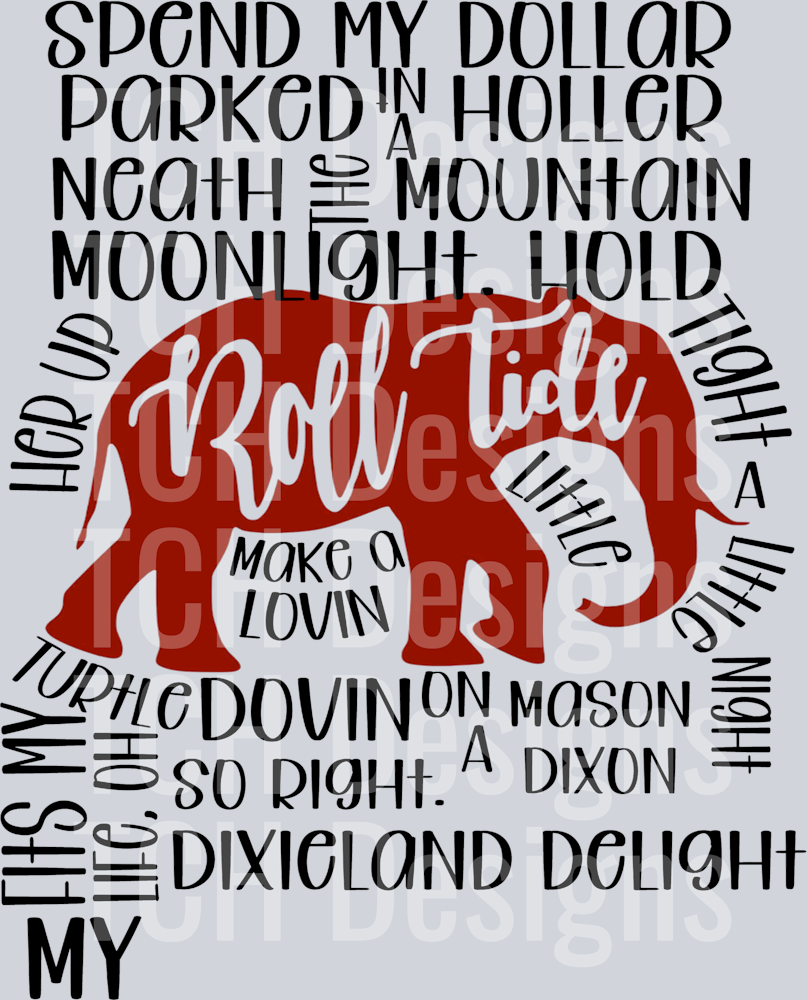 SPEND MY DOLLAR
PARKED IN A HOLLER
NEATH THE MOUNTAIN
MOONLIGHT. HOLD
HER UP
TIGHT
A
LITTLE
Roll Tide
LITTLE
MAKE A
LOVIN
NIGHT
TURTLE DOVIN ON A MASON
DIXON
FITS MY
LIFE, OH
SO RIGHT.
DIXIELAND DELIGHT
MY
TCH Designs
TCH Designs
TCH Designs
TCH Designs
TCH Designs
TCH Designs